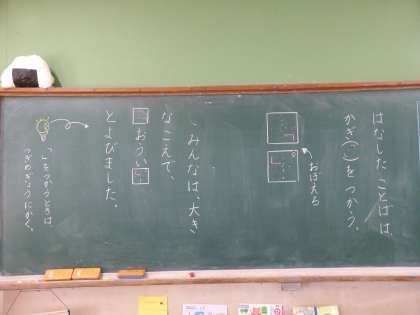 はなしたことばは、
かぎ(「」)をつかう。
おぼえる
みんなは、大き
なこえで、
「おうい」
とよびました。
「」をつかうときは
つぎのぎょうにかく。